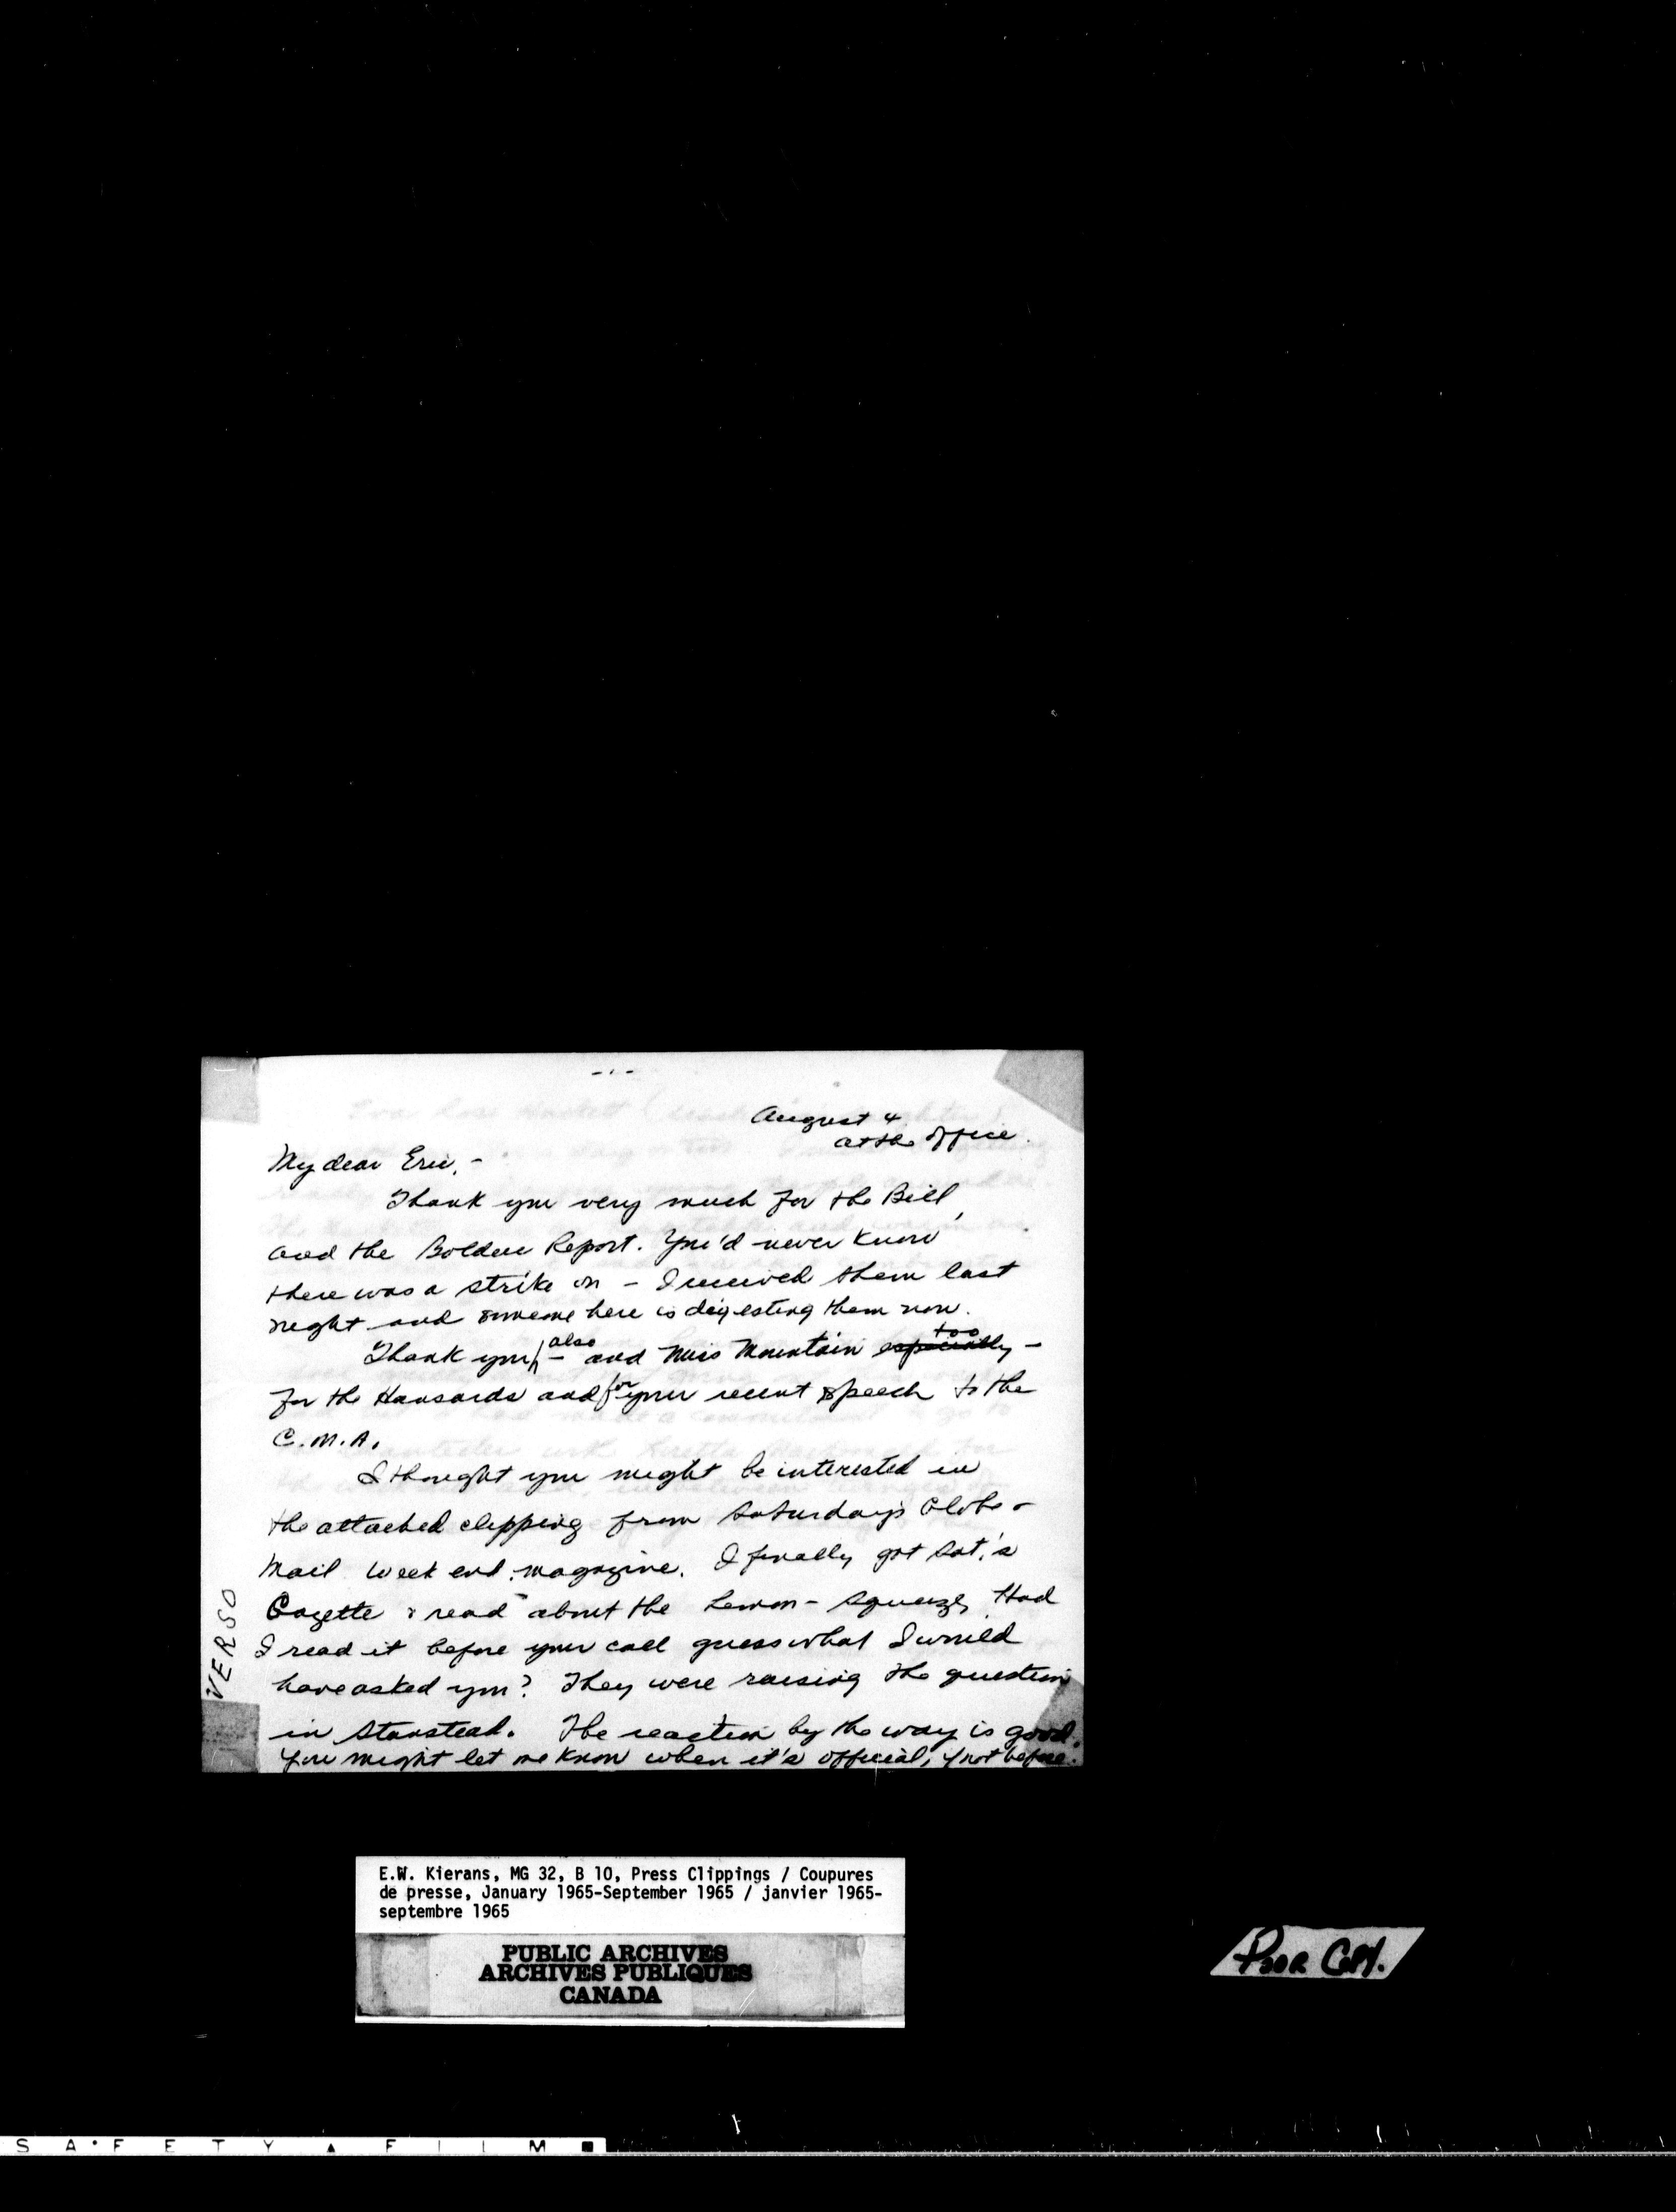 - 1 -
August 4
at the office.
My dear Eric, -
Thank you very much for the Bill,
and the Bolden Report. You'd never know
there was a strike on - I received them last
night and someone here is digesting them now.
Thank you also - and Miss Mountain especially too -
for the Hansards and for your recent speech to the
C.M.A.
I thought you might be interested in
the attached clipping from Saturday's Globe &
Mail week end magazine. I finally got Sat.'s
Gazette & read about the Lemon-Squeeze, Had
I read it before your call guess what I would
have asked you? They were raising the question
in Stanstead. The reaction by the way is good.
You might let me know when it's official, if not before.
VERSO
E.W. Kierans, MG 32, B 10, Press Clippings / Coupures
de presse, January 1965-September 1965 / janvier 1965-
septembre 1965
PUBLIC ARCHIVES
ARCHIVES PUBLIQUES
CANADA
POOR COPY.
SAFETY FILM